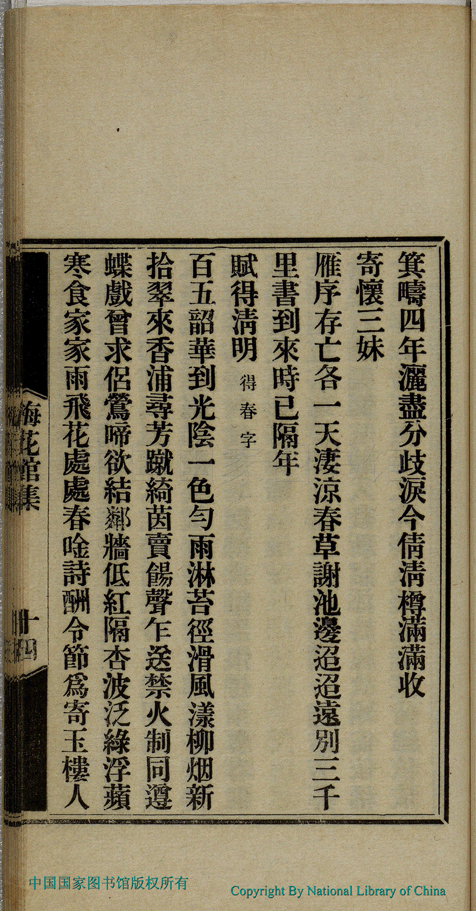 箕疇四年灑盡分歧淚今倩淸樽滿滿收
寄懷三妹
雁序存亡各一天淒涼春草謝池邊迢迢遠別三千
里書到來時已隔年
賦得淸明 得春字
百五韶華到光陰一色勻雨淋苔徑滑風漾柳烟新
拾翠來香浦尋芳蹴綺茵賣餳聲乍送禁火制同遵
蝶戲曾求侶鶯啼欲結鄰牆低紅隔杏波泛綠浮蘋
寒食家家雨飛花處處春唫詩酬令節爲寄玉樓人
梅花館集
十四
中国国家图书馆版权所有
Copyright By National Library of China